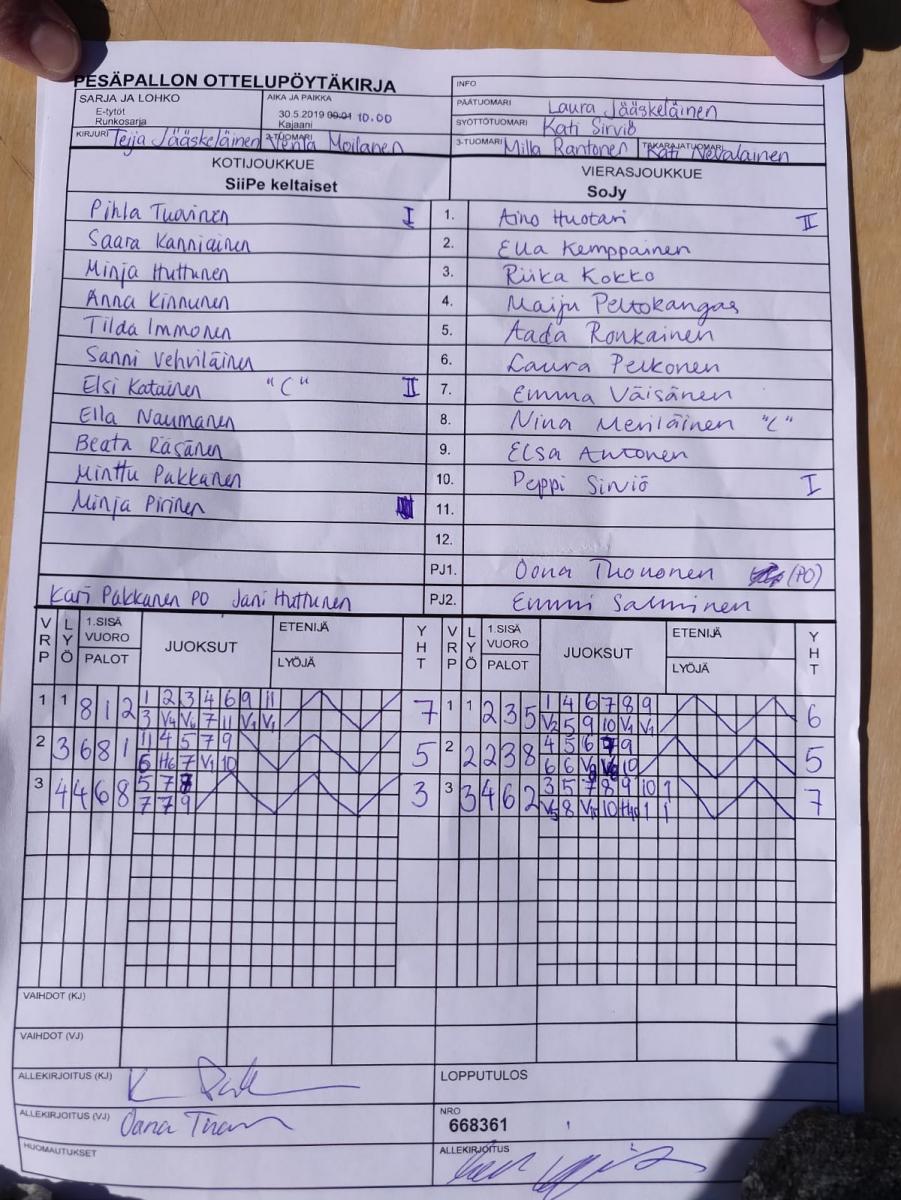 PESÄPALLON OTTELUPÖYTÄKIRJA
INFO
SARJA JA LOHKO
E-tytöt
Runkosarja
AIKA JA PAIKKA
30.5.2019 09.01 10.00
Kajaani
PÄÄTUOMARI Laura Jääskeläinen
SYÖTTÖTUOMARI Kati Sirviö
KIRJURI Teija Jääskeläinen 2-TUOMARI Venla Moilanen
3-TUOMARI Milla Rantonen TAKARAJATUOMARI Kati Nevalainen
KOTIJOUKKUE
SiiPe keltaiset
VIERASJOUKKUE
SoJy
Pihla Tuovinen I 1. Aino Huotari II
Saara Kanniainen 2. Ella Kemppainen
Minja Huttunen 3. Riika Kokko
Anna Kinnunen 4. Maiju Peltokangas
Tilda Immonen 5. Aada Ronkainen
Sanni Vehviläinen 6. Laura Pelkonen
Elsi Katainen "C" II 7. Emma Väisänen
Ella Naumanen 8. Nina Meriläinen "C"
Beata Räsänen 9. Elsa Antonen
Minttu Pakkanen 10. Peppi Sirviö I
Minja Pirinen 11.
12.
PJ1. Oona Thononen (PO)
Kari Pakkanen PO Jani Huttunen PJ2. Emmi Salminen
VRP LYÖ 1.SISÄ VUORO PALOT JUOKSUT ETENIJÄ LYÖJÄ YHT VRP LYÖ 1.SISÄ VUORO PALOT JUOKSUT ETENIJÄ LYÖJÄ YHT
1 1 8 1 2 1 2 3 4 6 9 11 7 1 1 2 3 5 1 4 6 7 8 9 6
3 V4 V6 7 11 V1 V1 V2 5 9 10 V1 V1
2 3 6 8 1 11 4 5 7 9 5 2 2 2 3 8 4 5 6 7 9 5
5 H6 7 V1 10 6 6 V8 V8 10
3 4 4 6 8 5 7 8 3 3 3 4 6 2 3 5 7 8 9 10 1 7
7 7 9 V5 8 V10 10 H10 1 1
VAIHDOT (KJ)
VAIHDOT (VJ)
ALLEKIRJOITUS (KJ)
LOPPUTULOS
ALLEKIRJOITUS (VJ)
NRO
668361
HUOMAUTUKSET
ALLEKIRJOITUS